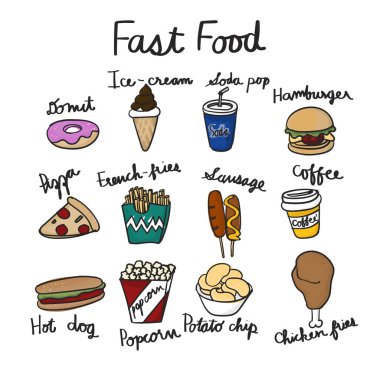 Fast Food
Ice-cream
Soda pop
Donut
Hamburger
Soda
Pizza
French-fries
Sausage
Coffee
Coffee
popcorn
Hot dog
Popcorn
Potato chip
Chicken fries